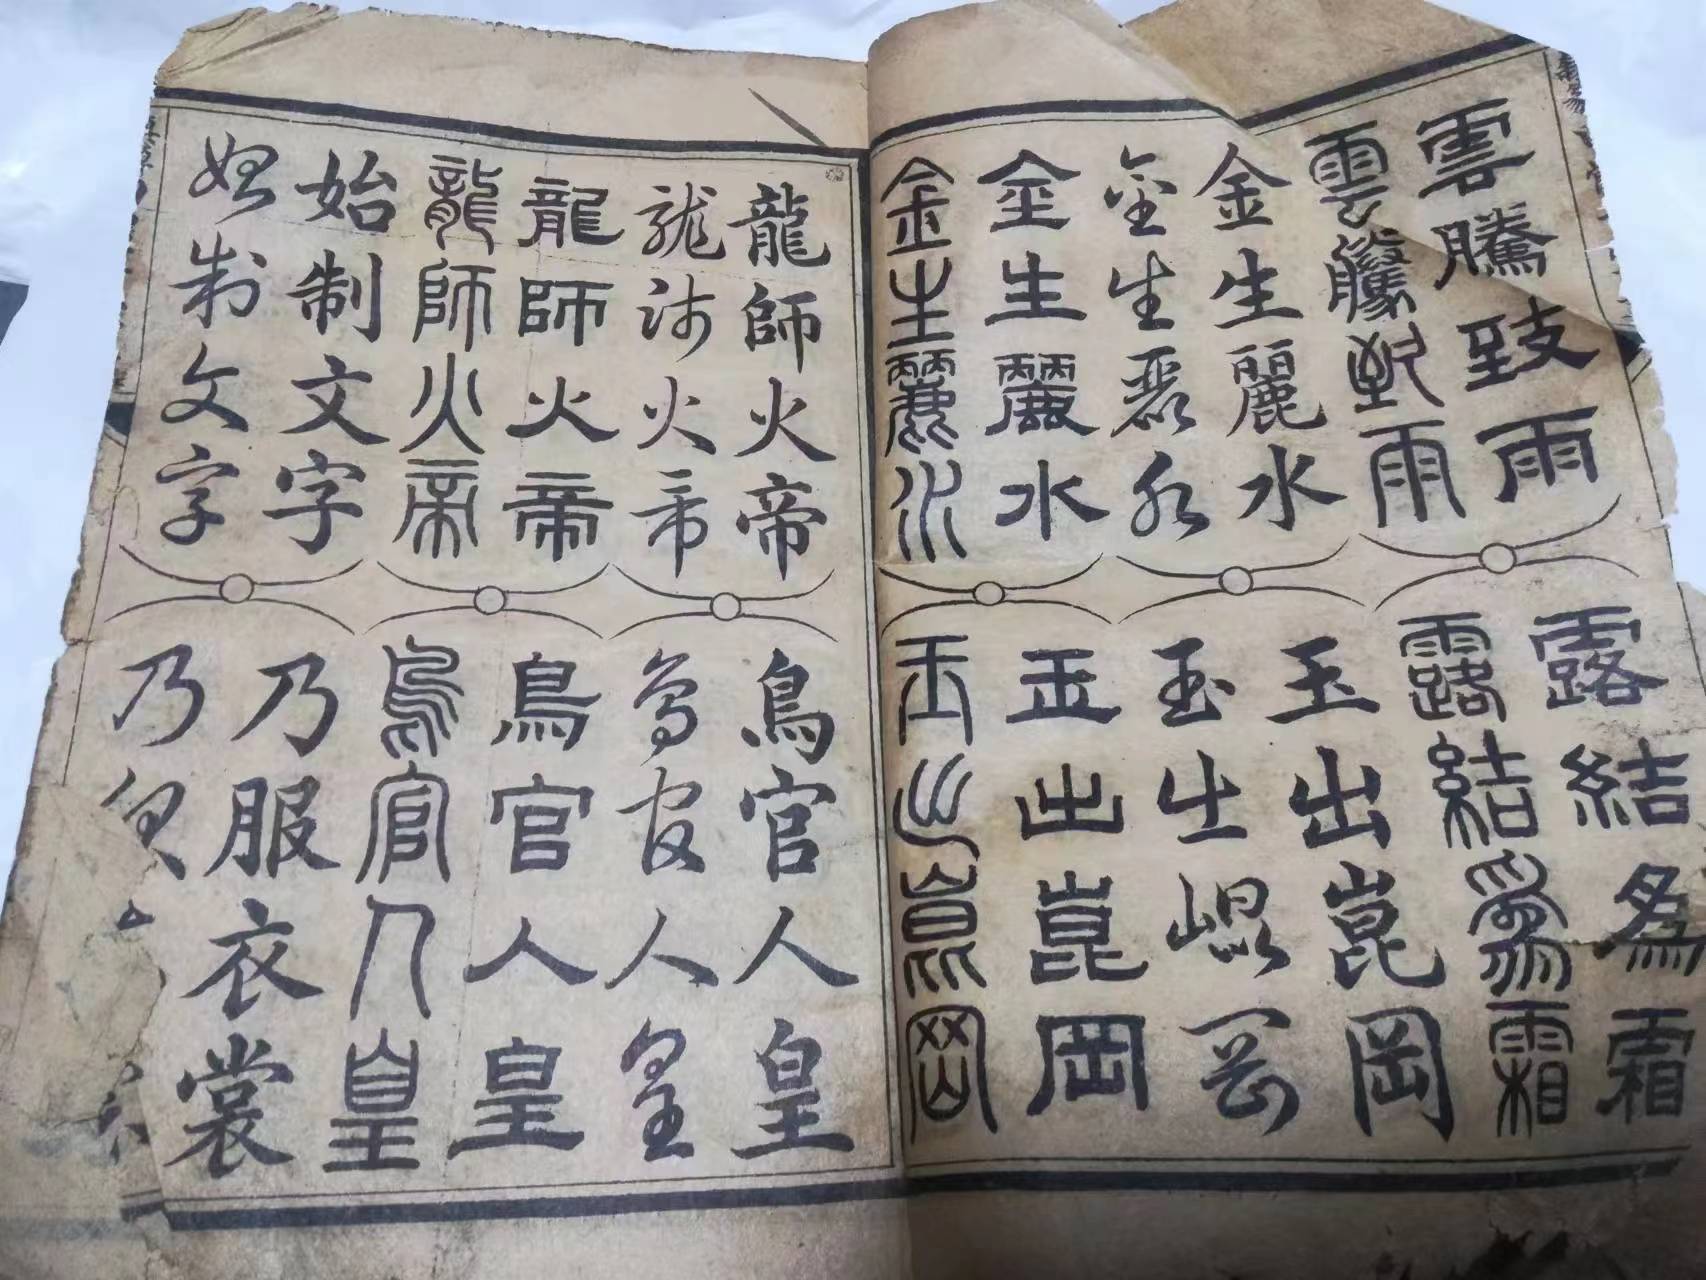 雲騰致雨
雲騰致雨
金生麗水
金生麗水
金生麗水
金生麗水
露結為霜
露結為霜
玉出崑岡
玉出崐岡
玉出崑岡
玉出崑岡
龍師火帝
龍師火帝
龍師火帝
龍師火帝
始制文字
始制文字
鳥官人皇
鳥官人皇
鳥官人皇
鳥官人皇
乃服衣裳
乃服